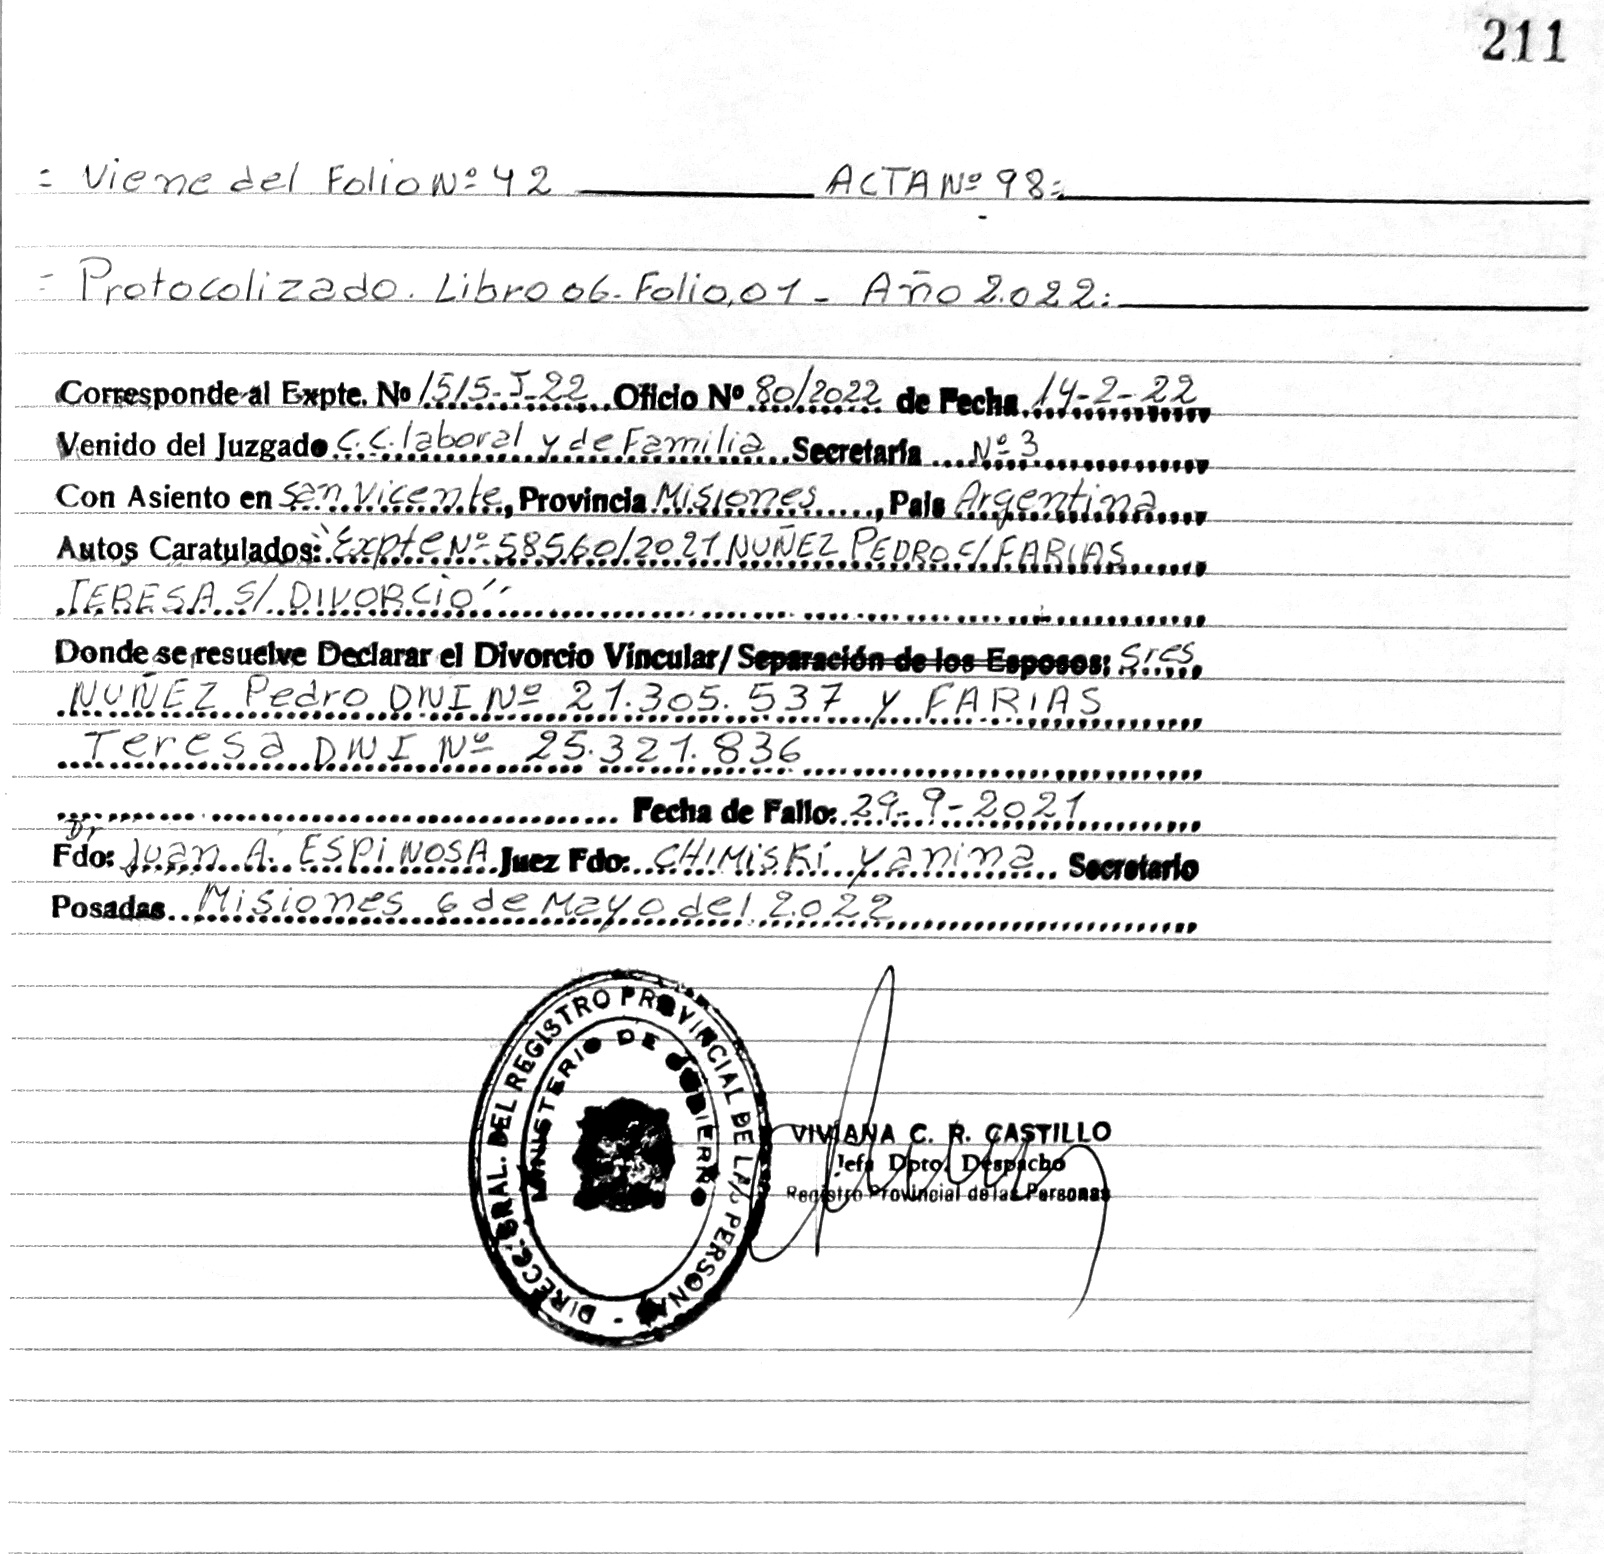 211
= Viene del Folio Nº 42 ACTA Nº 98=
= Protocolizado. Libro 06. Folio, 01 - Año 2.022:
Corresponde al Expte. Nº 1515-I-22 Oficio Nº 80/2022 de Fecha 14-2-22
Venido del Juzgado C.C. laboral y de Familia Secretaría Nº 3
Con Asiento en San Vicente, Provincia Misiones, País Argentina
Autos Caratulados: "Expte Nº 58560/2021 NUÑEZ PEDRO C/ FARIAS
TERESA S/ DIVORCIO"
Donde se resuelve Declarar el Divorcio Vincular/ Separación de los Esposos: Sres
NUÑEZ Pedro DNI Nº 21.305.537 y FARIAS
Teresa DNI Nº 25.321.836
Fecha de Fallo: 29-9-2021
Dr
Fdo: Juan A. ESPINOSA Juez Fdo: CHIMISKI Yanina Secretario
Posadas Misiones 6 de Mayo del 2.022
DIRECC. GRAL. DEL REGISTRO PROVINCIAL DE LAS PERSONAS -
MINISTERIO DE GOBIERNO
VIVIANA C. R. CASTILLO
Jefa Dpto. Despacho
Registro Provincial de las Personas